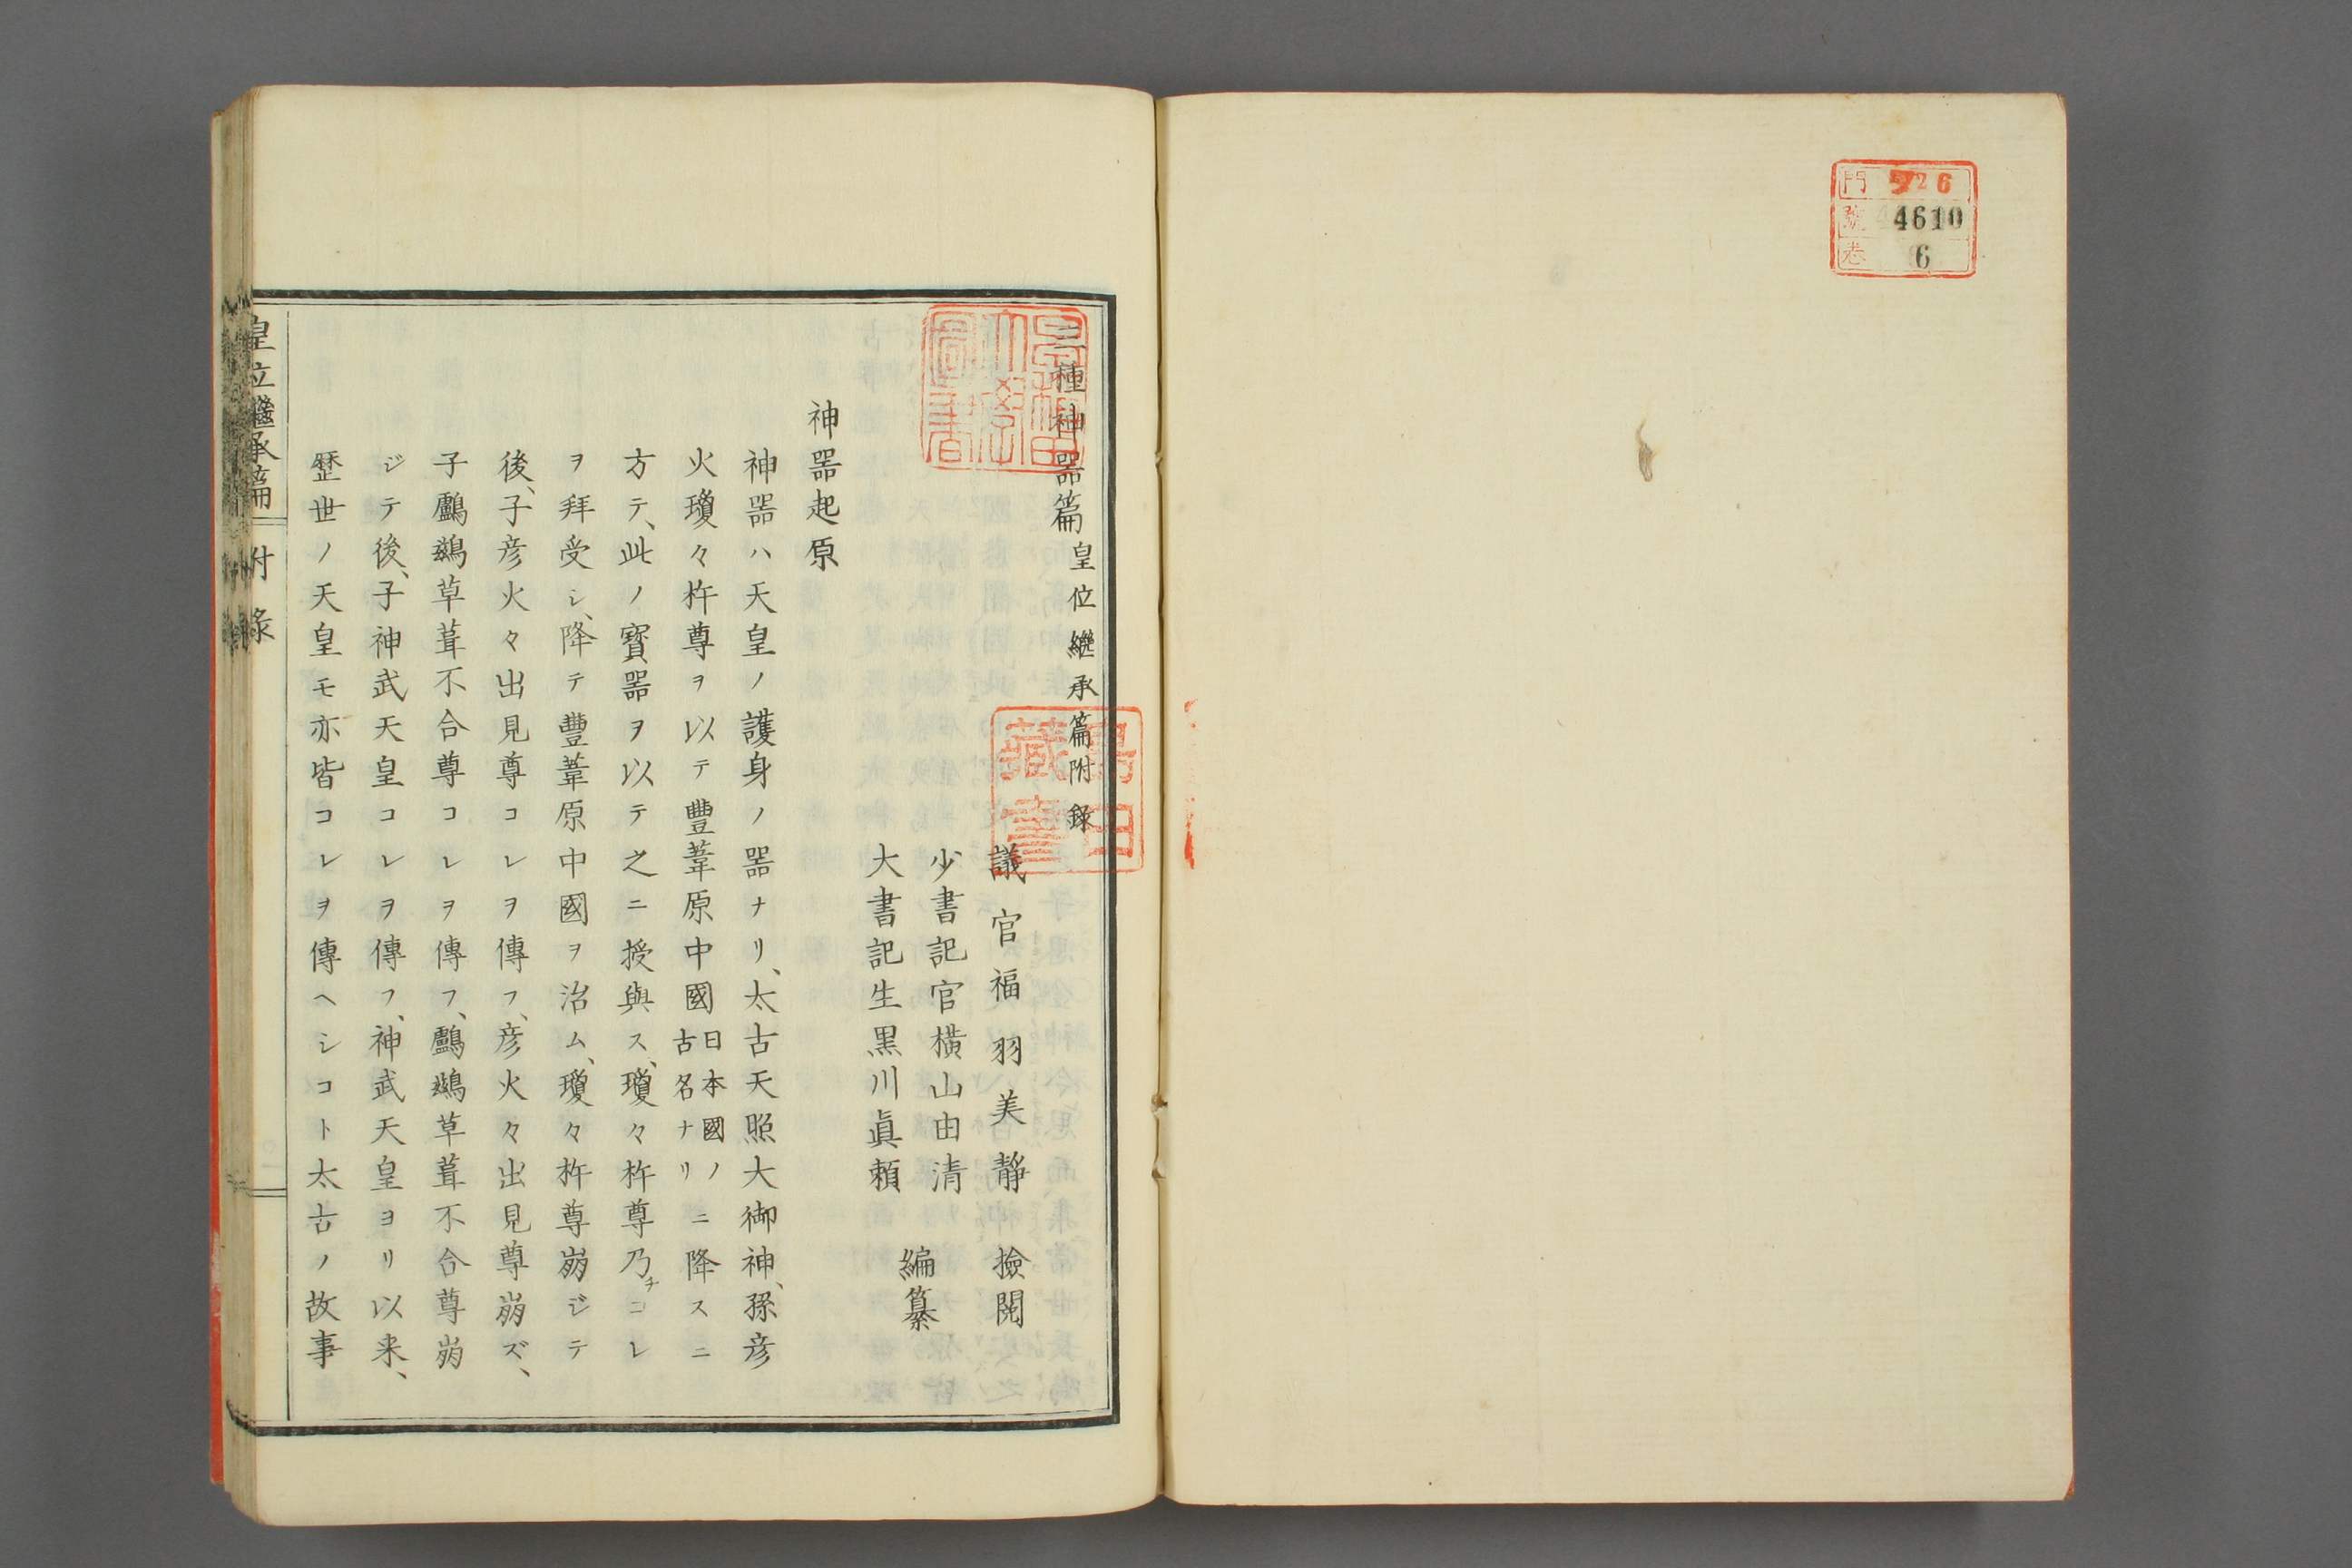 門 26
號 4610
卷 6
三種神器篇 皇位繼承篇附錄
議官福羽美靜 撿閲
少書記官橫山由清
大書記生黒川眞頼
編纂
神器起原
神器ハ天皇ノ護身ノ器ナリ、太古天照大御神、孫彦
火瓊々杵尊ヲ以テ豐葦原中國日本國ノ古名ナリニ降スニ
方テ、此ノ寶器ヲ以テ之ニ授與ス、瓊々杵尊乃チコレ
ヲ拜受シ、降テ豐葦原中國ヲ治ム、瓊々杵尊崩ジテ
後、子彦火々出見尊コレヲ傳フ、彦火々出見尊崩ズ、
子鸕鷀草葺不合尊コレヲ傳フ、鸕鷀草葺不合尊崩
ジテ後、子神武天皇コレヲ傳フ、神武天皇ヨリ以来、
歴世ノ天皇モ亦皆コレヲ傳ヘシコト太古ノ故事
皇位繼承篇 附錄